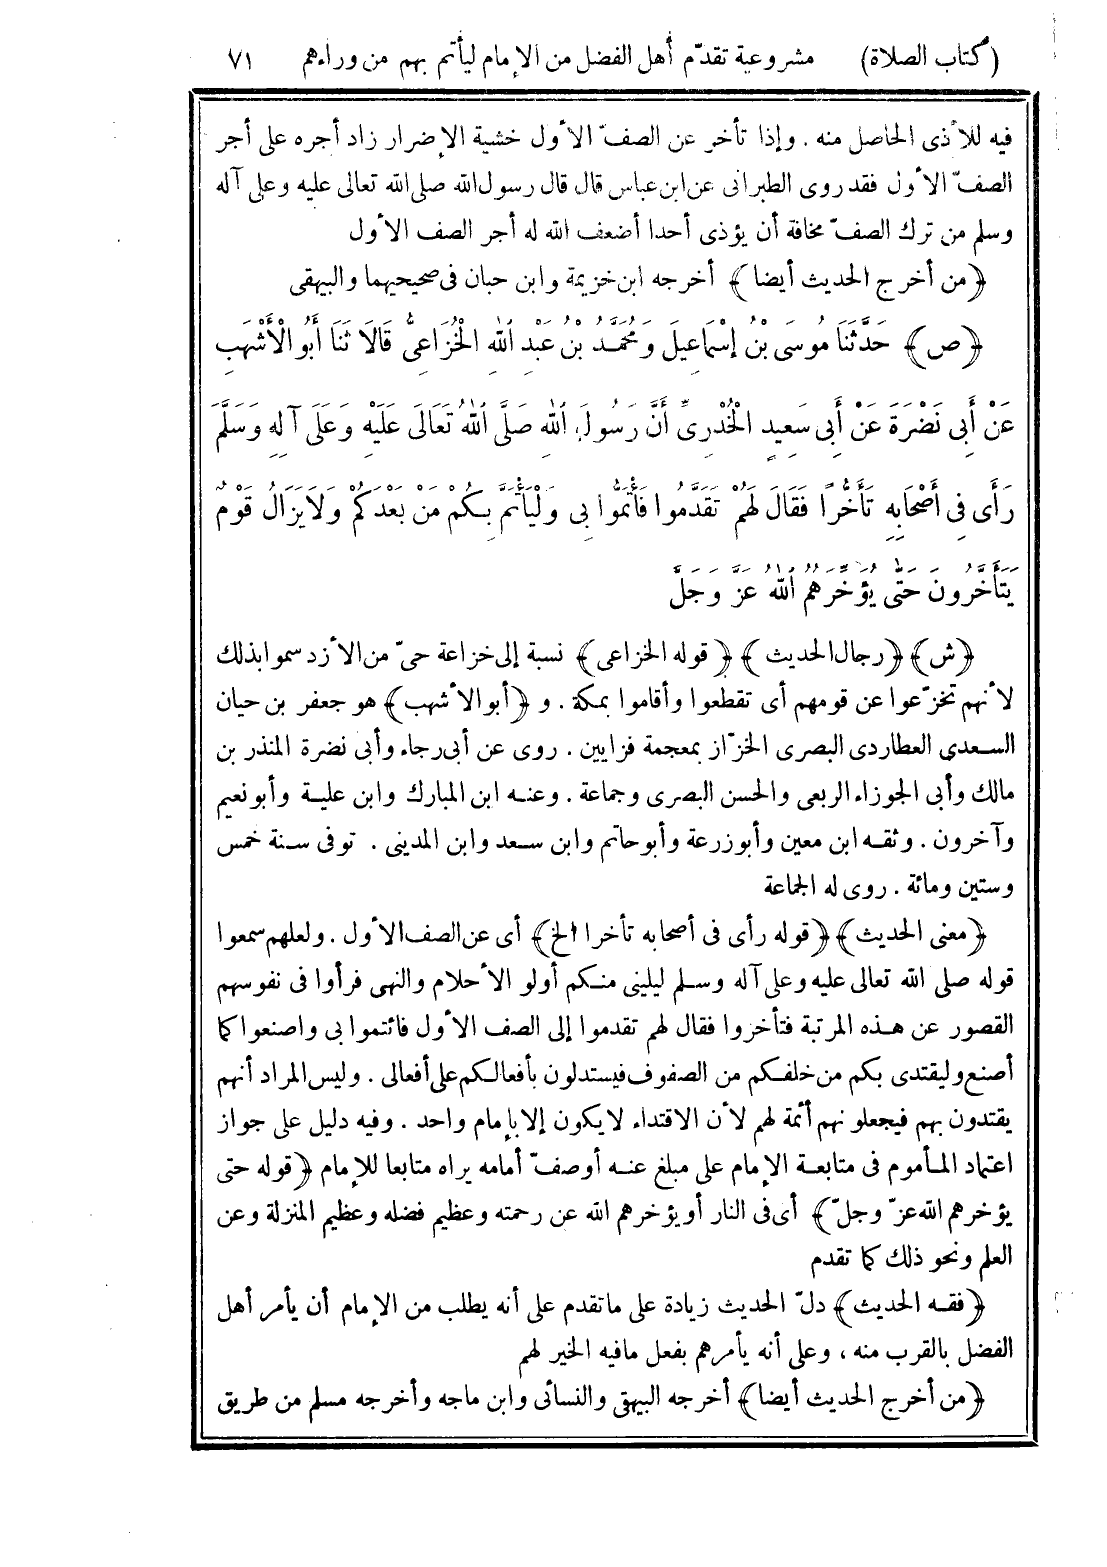 (كتاب الصلاة) مشروعية تقدّم أهل الفضل من الإمام ليأتم بهم من وراءهم ٧١
فيه للأذى الحاصل منه . وإذا تأخر عن الصفّ الأول خشية الإضرار زاد أجره على أجر
الصفّ الأول فقد روى الطبرانى عن ابن عباس قال قال رسول الله صلى الله تعالى عليه وعلى آله
وسلم من ترك الصفّ مخافة أن يؤذى أحدا أضعف الله له أجر الصف الأول
﴿من أخرج الحديث أيضا﴾ أخرجه ابن خزيمة وابن حبان فى صحيحيهما والبيهقى
﴿ص﴾ حَدَّثَنَا مُوسَى بْنُ إِسْمَاعِيلَ وَمُحَمَّدُ بْنُ عَبْدِ اللهِ الْخُزَاعِىُّ قَالَا ثَنَا أَبُو الْأَشْهَبِ
عَنْ أَبِى نَضْرَةَ عَنْ أَبِى سَعِيدٍ الْخُدْرِىِّ أَنَّ رَسُولَ اللهِ صَلَّى اللهُ تَعَالَى عَلَيْهِ وَعَلَى آلِهِ وَسَلَّمَ
رَأَى فِى أَصْحَابِهِ تَأَخُّرًا فَقَالَ لَهُمْ تَقَدَّمُوا فَأْتَمُّوا بِى وَلْيَأْتَمَّ بِكُمْ مَنْ بَعْدَكُمْ وَلَا يَزَالُ قَوْمٌ
يَتَأَخَّرُونَ حَتَّى يُؤَخِّرَهُمُ اللهُ عَزَّ وَجَلَّ
﴿ش﴾ ﴿رجال الحديث﴾ ﴿قوله الخزاعى﴾ نسبة إلى خزاعة حىّ من الأزد سموا بذلك
لأنهم تخزّعوا عن قومهم أى تقطعوا وأقاموا بمكة . و ﴿أبو الأشهب﴾ هو جعفر بن حيان
السعدى العطاردى البصرى الخزّاز بمعجمة فزايين . روى عن أبى رجاء وأبى نضرة المنذر بن
مالك وأبى الجوزاء الربعى والحسن البصرى وجماعة . وعنه ابن المبارك وابن علية وأبو نعيم
وآخرون . وثقه ابن معين وأبو زرعة وأبو حاتم وابن سعد وابن المدينى . توفى سنة خمس
وستين ومائة . روى له الجماعة
﴿معنى الحديث﴾ ﴿قوله رأى فى أصحابه تأخرا الخ﴾ أى عن الصف الأول . ولعلهم سمعوا
قوله صلى الله تعالى عليه وعلى آله وسلم ليلينى منكم أولو الأحلام والنهى فرأوا فى نفوسهم
القصور عن هذه المرتبة فتأخروا فقال لهم تقدموا إلى الصف الأول فائتموا بى واصنعوا كما
أصنع وليقتدى بكم من خلفكم من الصفوف فيستدلون بأفعالكم على أفعالى . وليس المراد أنهم
يقتدون بهم فيجعلونهم أئمة لهم لأن الاقتداء لا يكون إلا بإمام واحد . وفيه دليل على جواز
اعتماد المأموم فى متابعة الإمام على مبلغ عنه أو صفّ أمامه يراه متابعا للإمام ﴿قوله حتى
يؤخرهم الله عزّ وجلّ﴾ أى فى النار أو يؤخرهم الله عن رحمته وعظيم فضله وعظيم المنزلة وعن
العلم ونحو ذلك كما تقدم
﴿فقه الحديث﴾ دلّ الحديث زيادة على ما تقدم على أنه يطلب من الإمام أن يأمر أهل
الفضل بالقرب منه ، وعلى أنه يأمرهم بفعل مافيه الخير لهم
﴿من أخرج الحديث أيضا﴾ أخرجه البيهقى والنسائى وابن ماجه وأخرجه مسلم من طريق